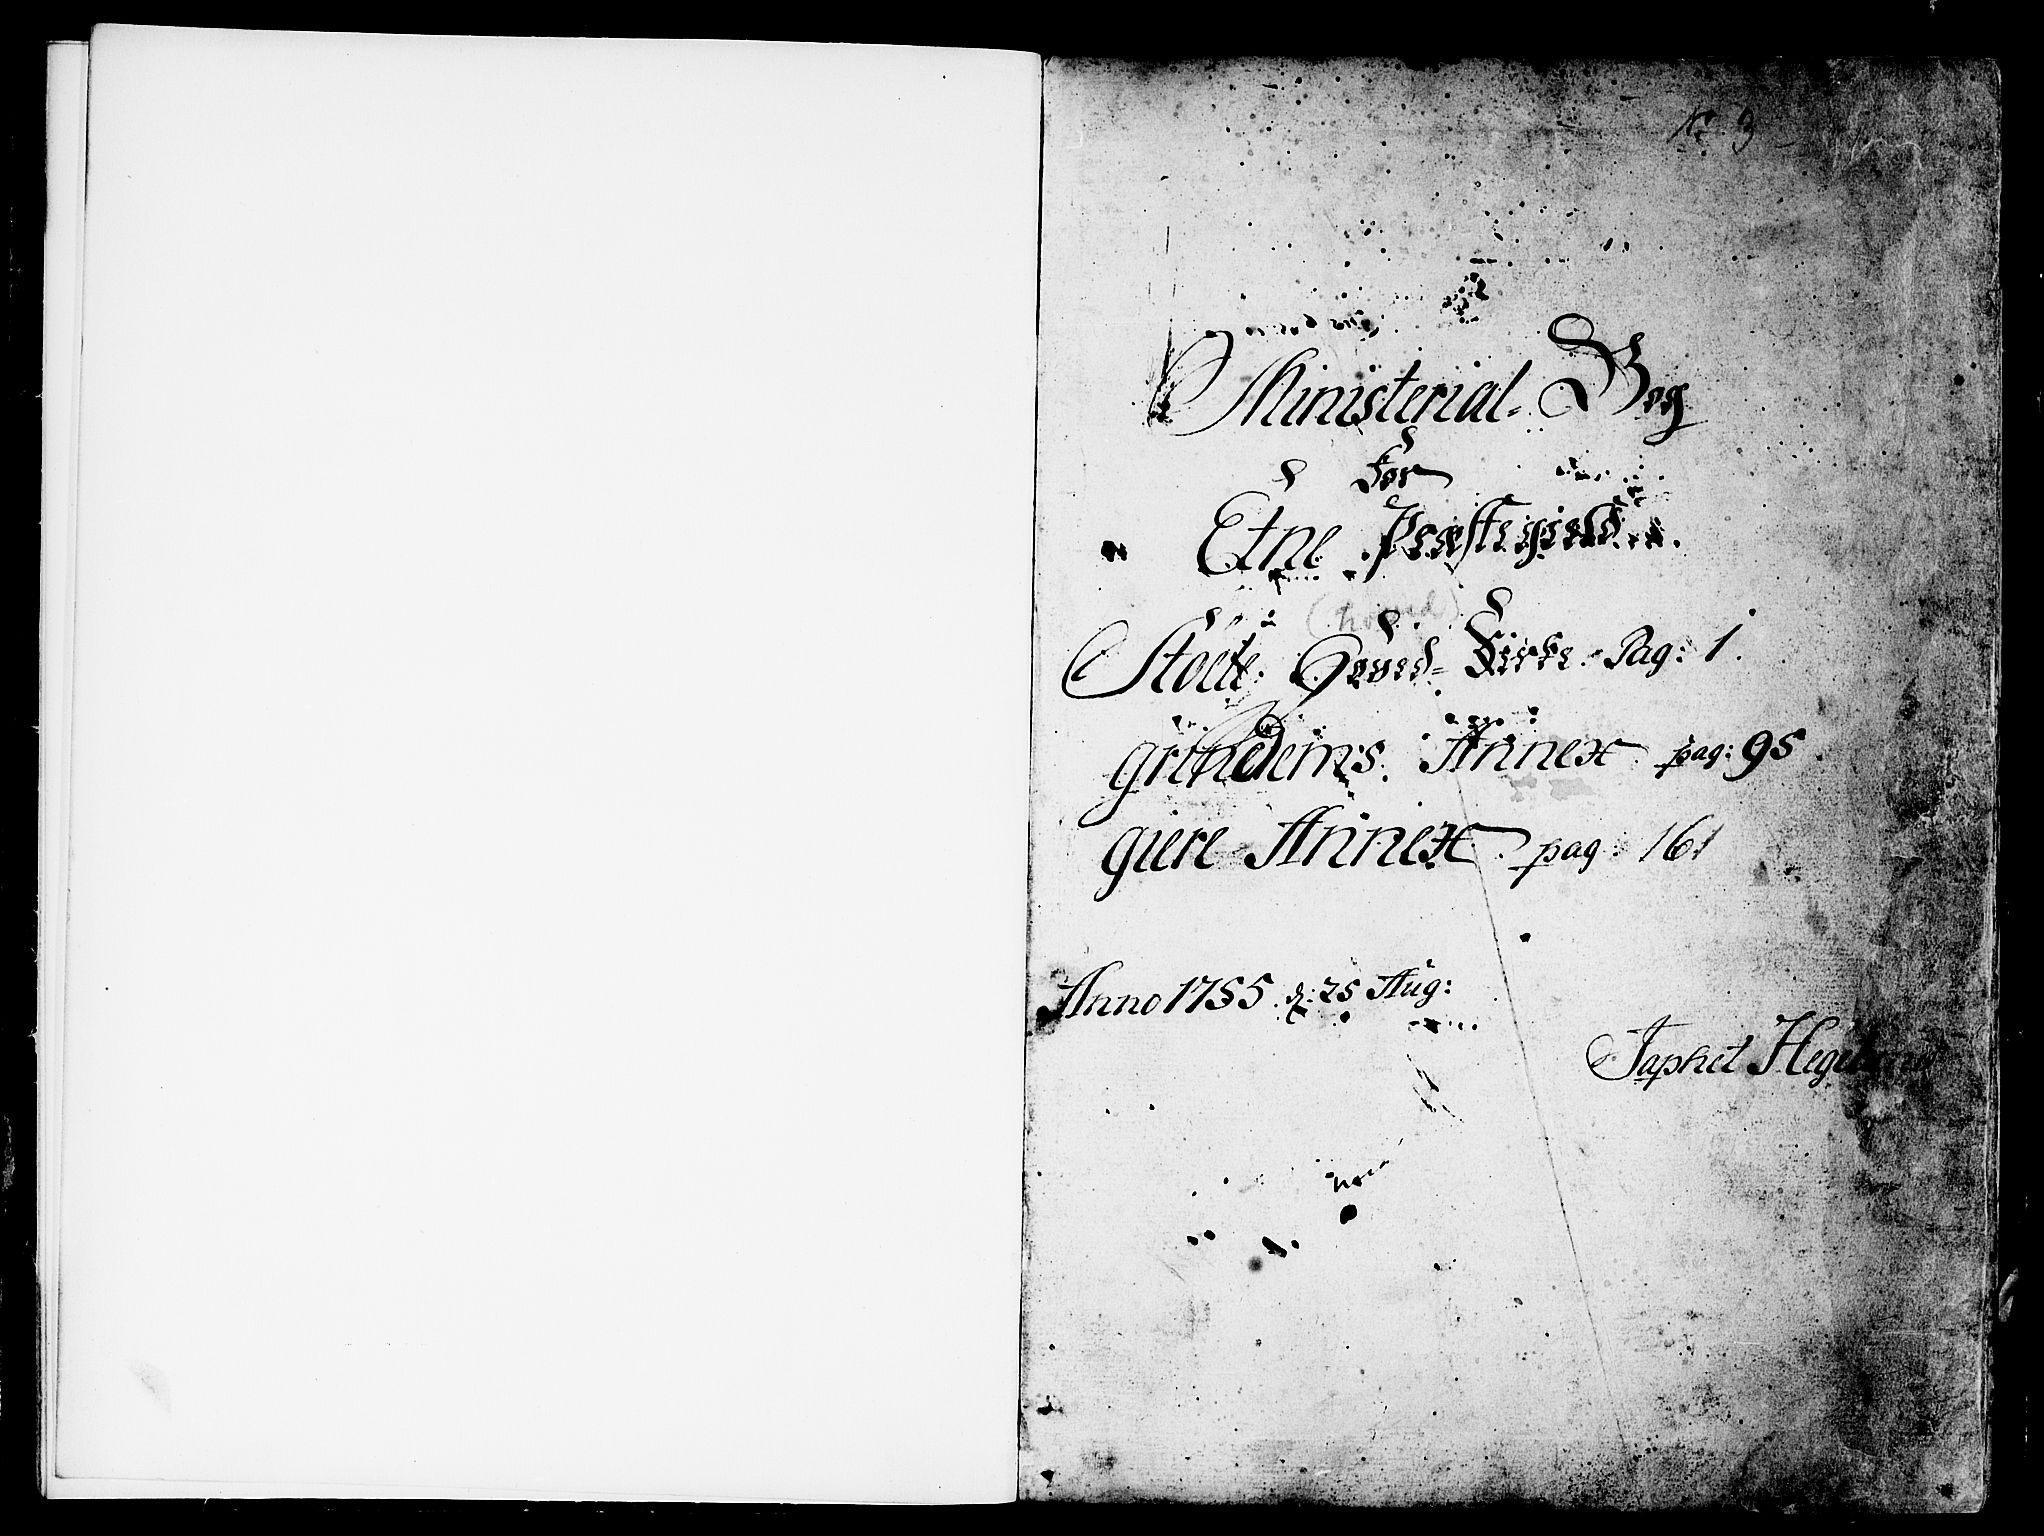 No 3
Ministerial-Bog
for
Etne Præstegield
(hoved)
Stoele Hoved-Kirke Pag: 1.
grindems Annex pag: 95
giere Annex pag: 161
Anno 1755 d: 25 Aug:
Japhet Hegelund